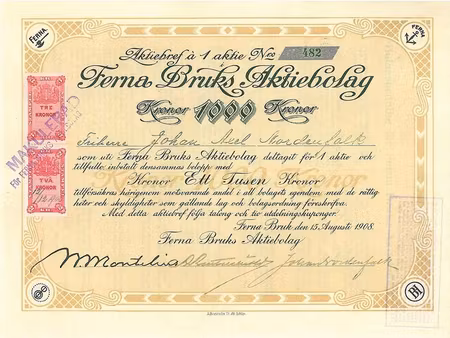 FERNA
FERNA
Aktiebref à 1 aktie Nro 482
Ferna Bruks Aktiebolag
Kronor 1000 Kronor
TRE
KRONOR
MAKULERAD
TVÅ
KRONOR
Friherre Johan Axel Nordenfalk
som uti Ferna Bruks Aktiebolag deltagit för 1 aktie och
tillfullo inbetalt densammas belopp med
Kronor Ett Tusen Kronor
tillförsäkras härigenom motsvarande andel i all bolagets egendom med de rättig-
heter och skyldigheter som gällande lag och bolagsordning föreskrifva.
Med detta aktiebref följa talong och tio utdelningskuponger.
Ferna Bruk den 15 Augusti 1908.
Ferna Bruks Aktiebolag
Johan Nordenfalk